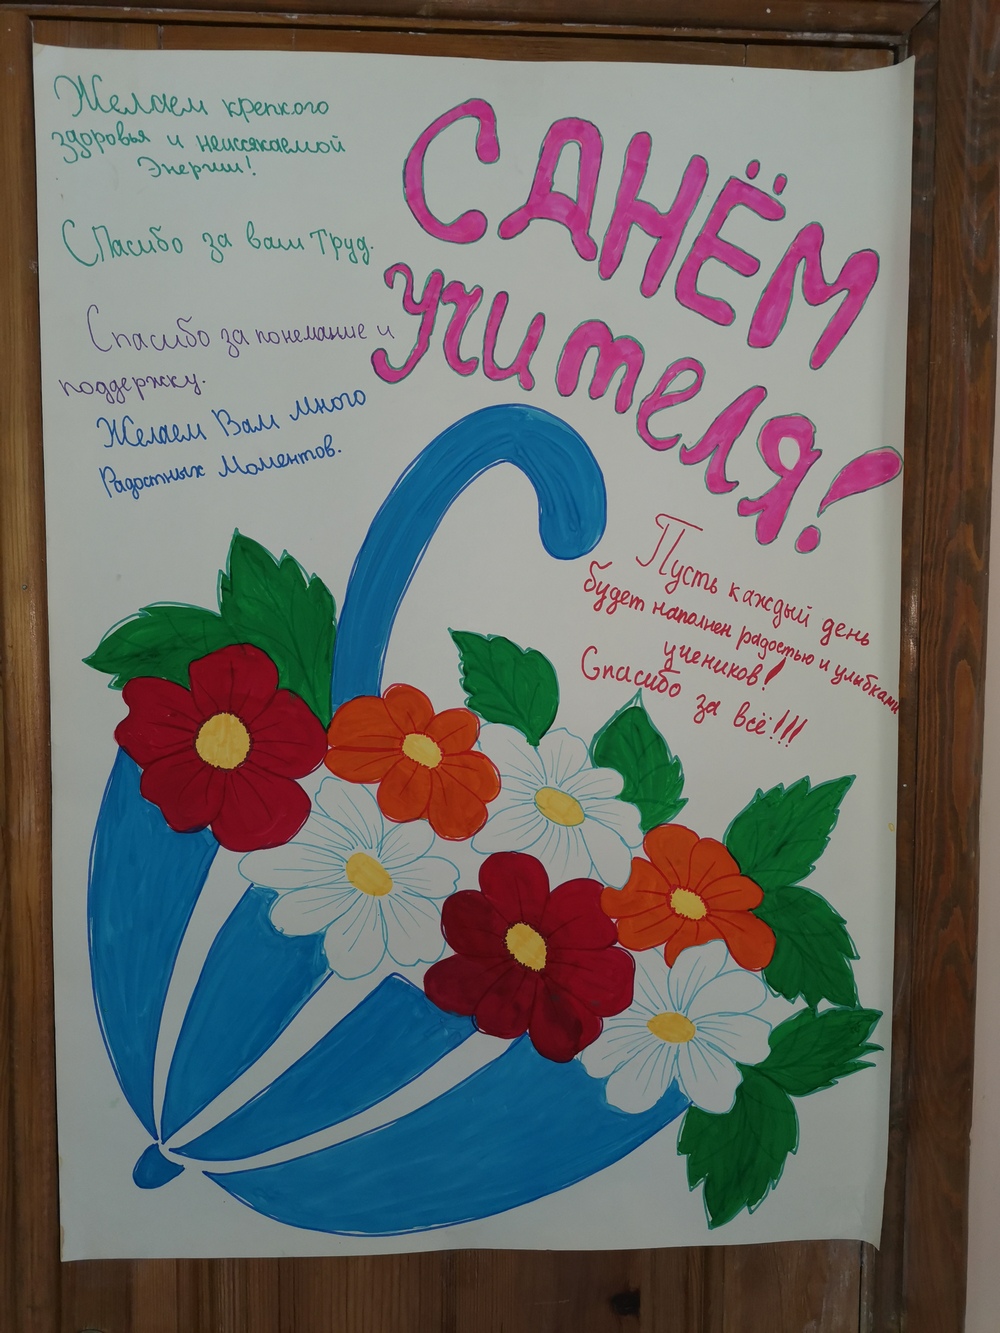 Желаем крепкого
здоровья и неиссякаемой
Энергии!
Спасибо за ваш Труд.
Спасибо за понемание и
поддержку.
Желаем Вам много
Радостных Моментов.
С ДНЁМ
учителя!
Пусть каждый день
будет наполнен радостью и улыбками
учеников!
Спасибо
за всё!!!